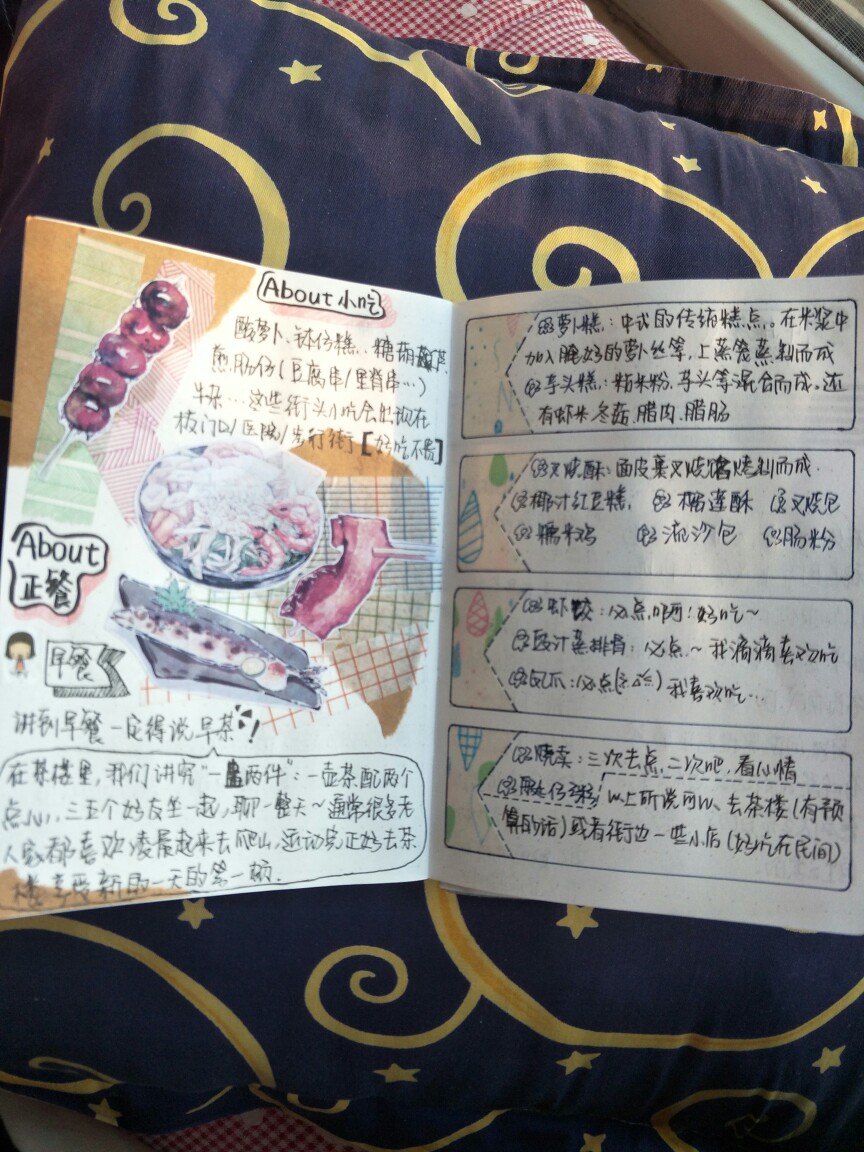 About 小吃
酸萝卜、钵仔糕、糖葫芦、
煎肠仔(豆腐串/里脊串…)
牛杂…这些街头小吃会出现在
校门口/医院/步行街【好吃不贵】
About
正餐
早餐
讲到早餐一定得说早茶!
在茶楼里,我们讲究"一盅两件":一壶茶配两个
点心,三五个好友坐一起,聊一整天~通常很多老
人家都喜欢凌晨起来去爬山,运动完正好去茶
楼享受新的一天的第一顿.
萝卜糕:中式的传统糕点。在米浆中
加入腌好的萝卜丝等,上蒸笼蒸制而成
芋头糕:粘米粉、芋头等混合而成。还
有虾米、冬菇、腊肉、腊肠
叉烧酥:面皮裹叉烧馅烤制而成.
椰汁红豆糕、 榴莲酥 叉烧包
糯米鸡 流沙包 肠粉
虾饺:必点啊!好吃~
豉汁蒸排骨:必点.~我滴滴喜欢吃
凤爪:必点 我喜欢吃…
烧卖:三次去点,二次吧,看心情
以上所说可以、去茶楼(有预
算的话)或者街边一些小店(好吃在民间)